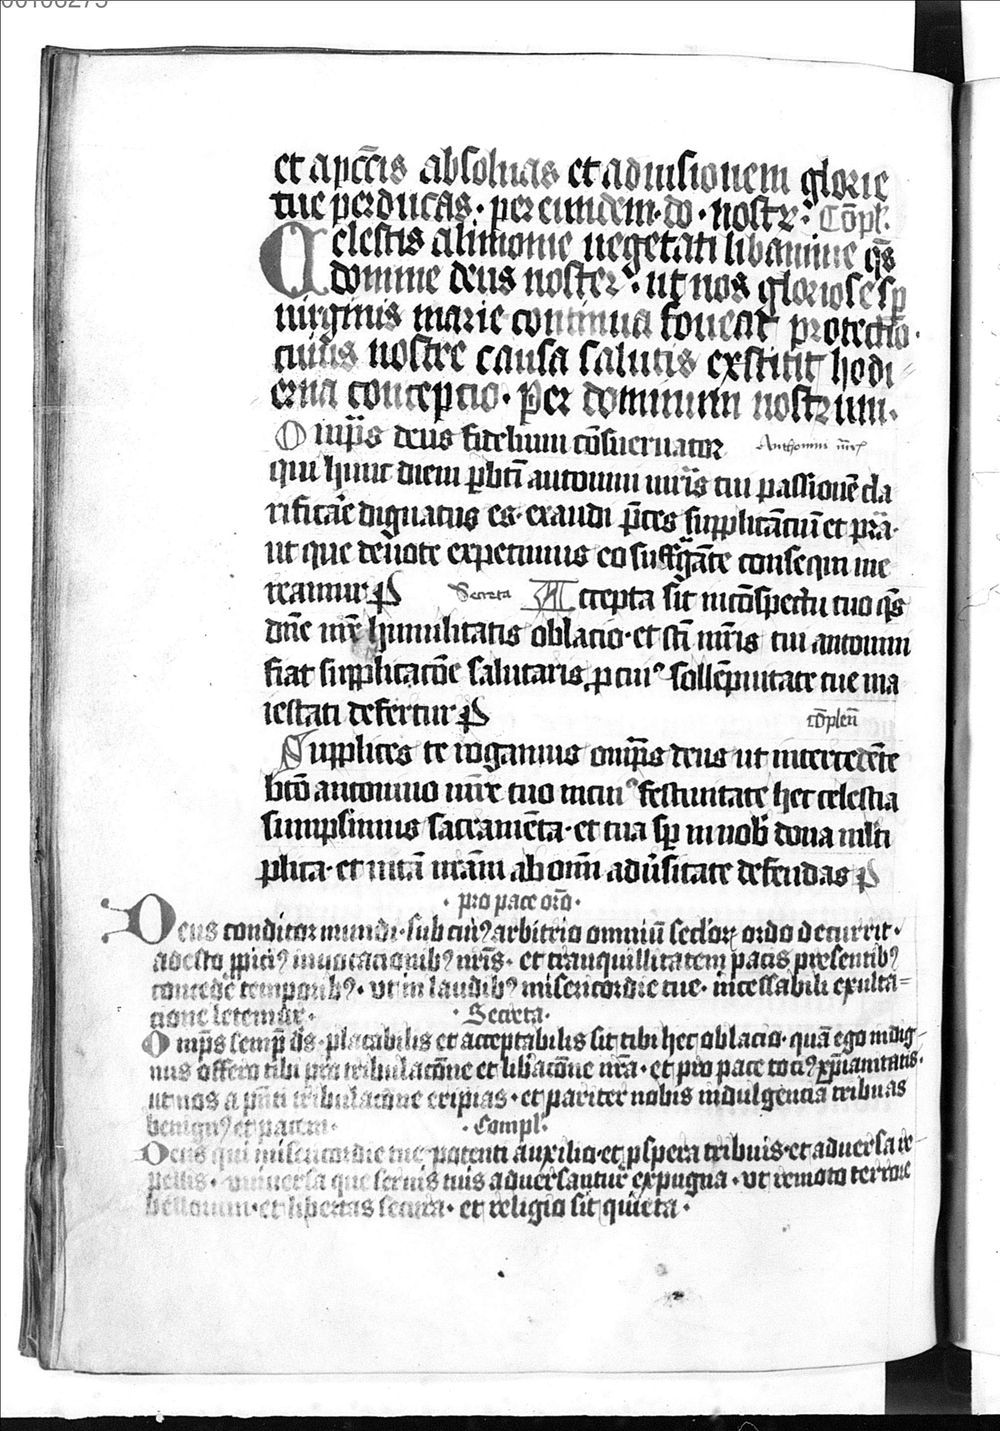 et a pctis absoluas et ad uisionem glorie
tue perducas. per eundem. do. nostr. Compl.
Celestis alimonie uegetati libamine qs
domine deus noster. ut nos gloriose sp
uirginis marie continua foueat protectio.
cuius nostre causa salutis exstitit hodi
erna conceptio. Per dominum nostrum.
Omps deus fidelium conseruator Anthonini mris
qui hunc diem p bti antonini mris tui passione cla
rificare dignatus es. exaudi pces supplicanciu et pra.
ut que deuote expetimus eo suffragate consequi me
reamur P Secreta Accepta sit in cospectu tuo qs
dne nre humilitatis oblacio. et sci mris tui antonini
fiat supplicacoe salutaris. p cui9 sollepnitate tue ma
iestati defertur P complen
Supplices te rogamus omps deus ut intercedete
bto antonino mre tuo in cui9 festiuitate hec celestia
sumpsimus sacrameta. et tua sp in nob dona mlti
plica. et uita nram ab omi aduersitate defendas P
. pro pace oro.
Deus conditor mundi. sub cui9 arbitrio omniu seclor ordo decurrit.
adesto ppici9 inuocacionib9 nris. et tranquillitatem pacis presentib9
concede temporib9. vt in laudib9 misericordie tue. incessabili exulta=
cione letemur. . Secreta.
Omps semp ds. placabilis et acceptabilis sit tibi hec oblacio. qua ego indig-
nus offero tibi pro tribulacone et libacone nra. et pro pace toci9 xpianitatis.
ut nos a pnti tribulacone eripias. et pariter nobis indulgencia tribuas
benign9 et pacem. . Compl.
Deus qui misericordie tue potenti auxilio. et pspera tribuis. et aduersa re-
pellis. vniuersa que seruis tuis aduersantur expugna. vt remoto terrore
bellorum. et libertas secura. et religio sit quieta.